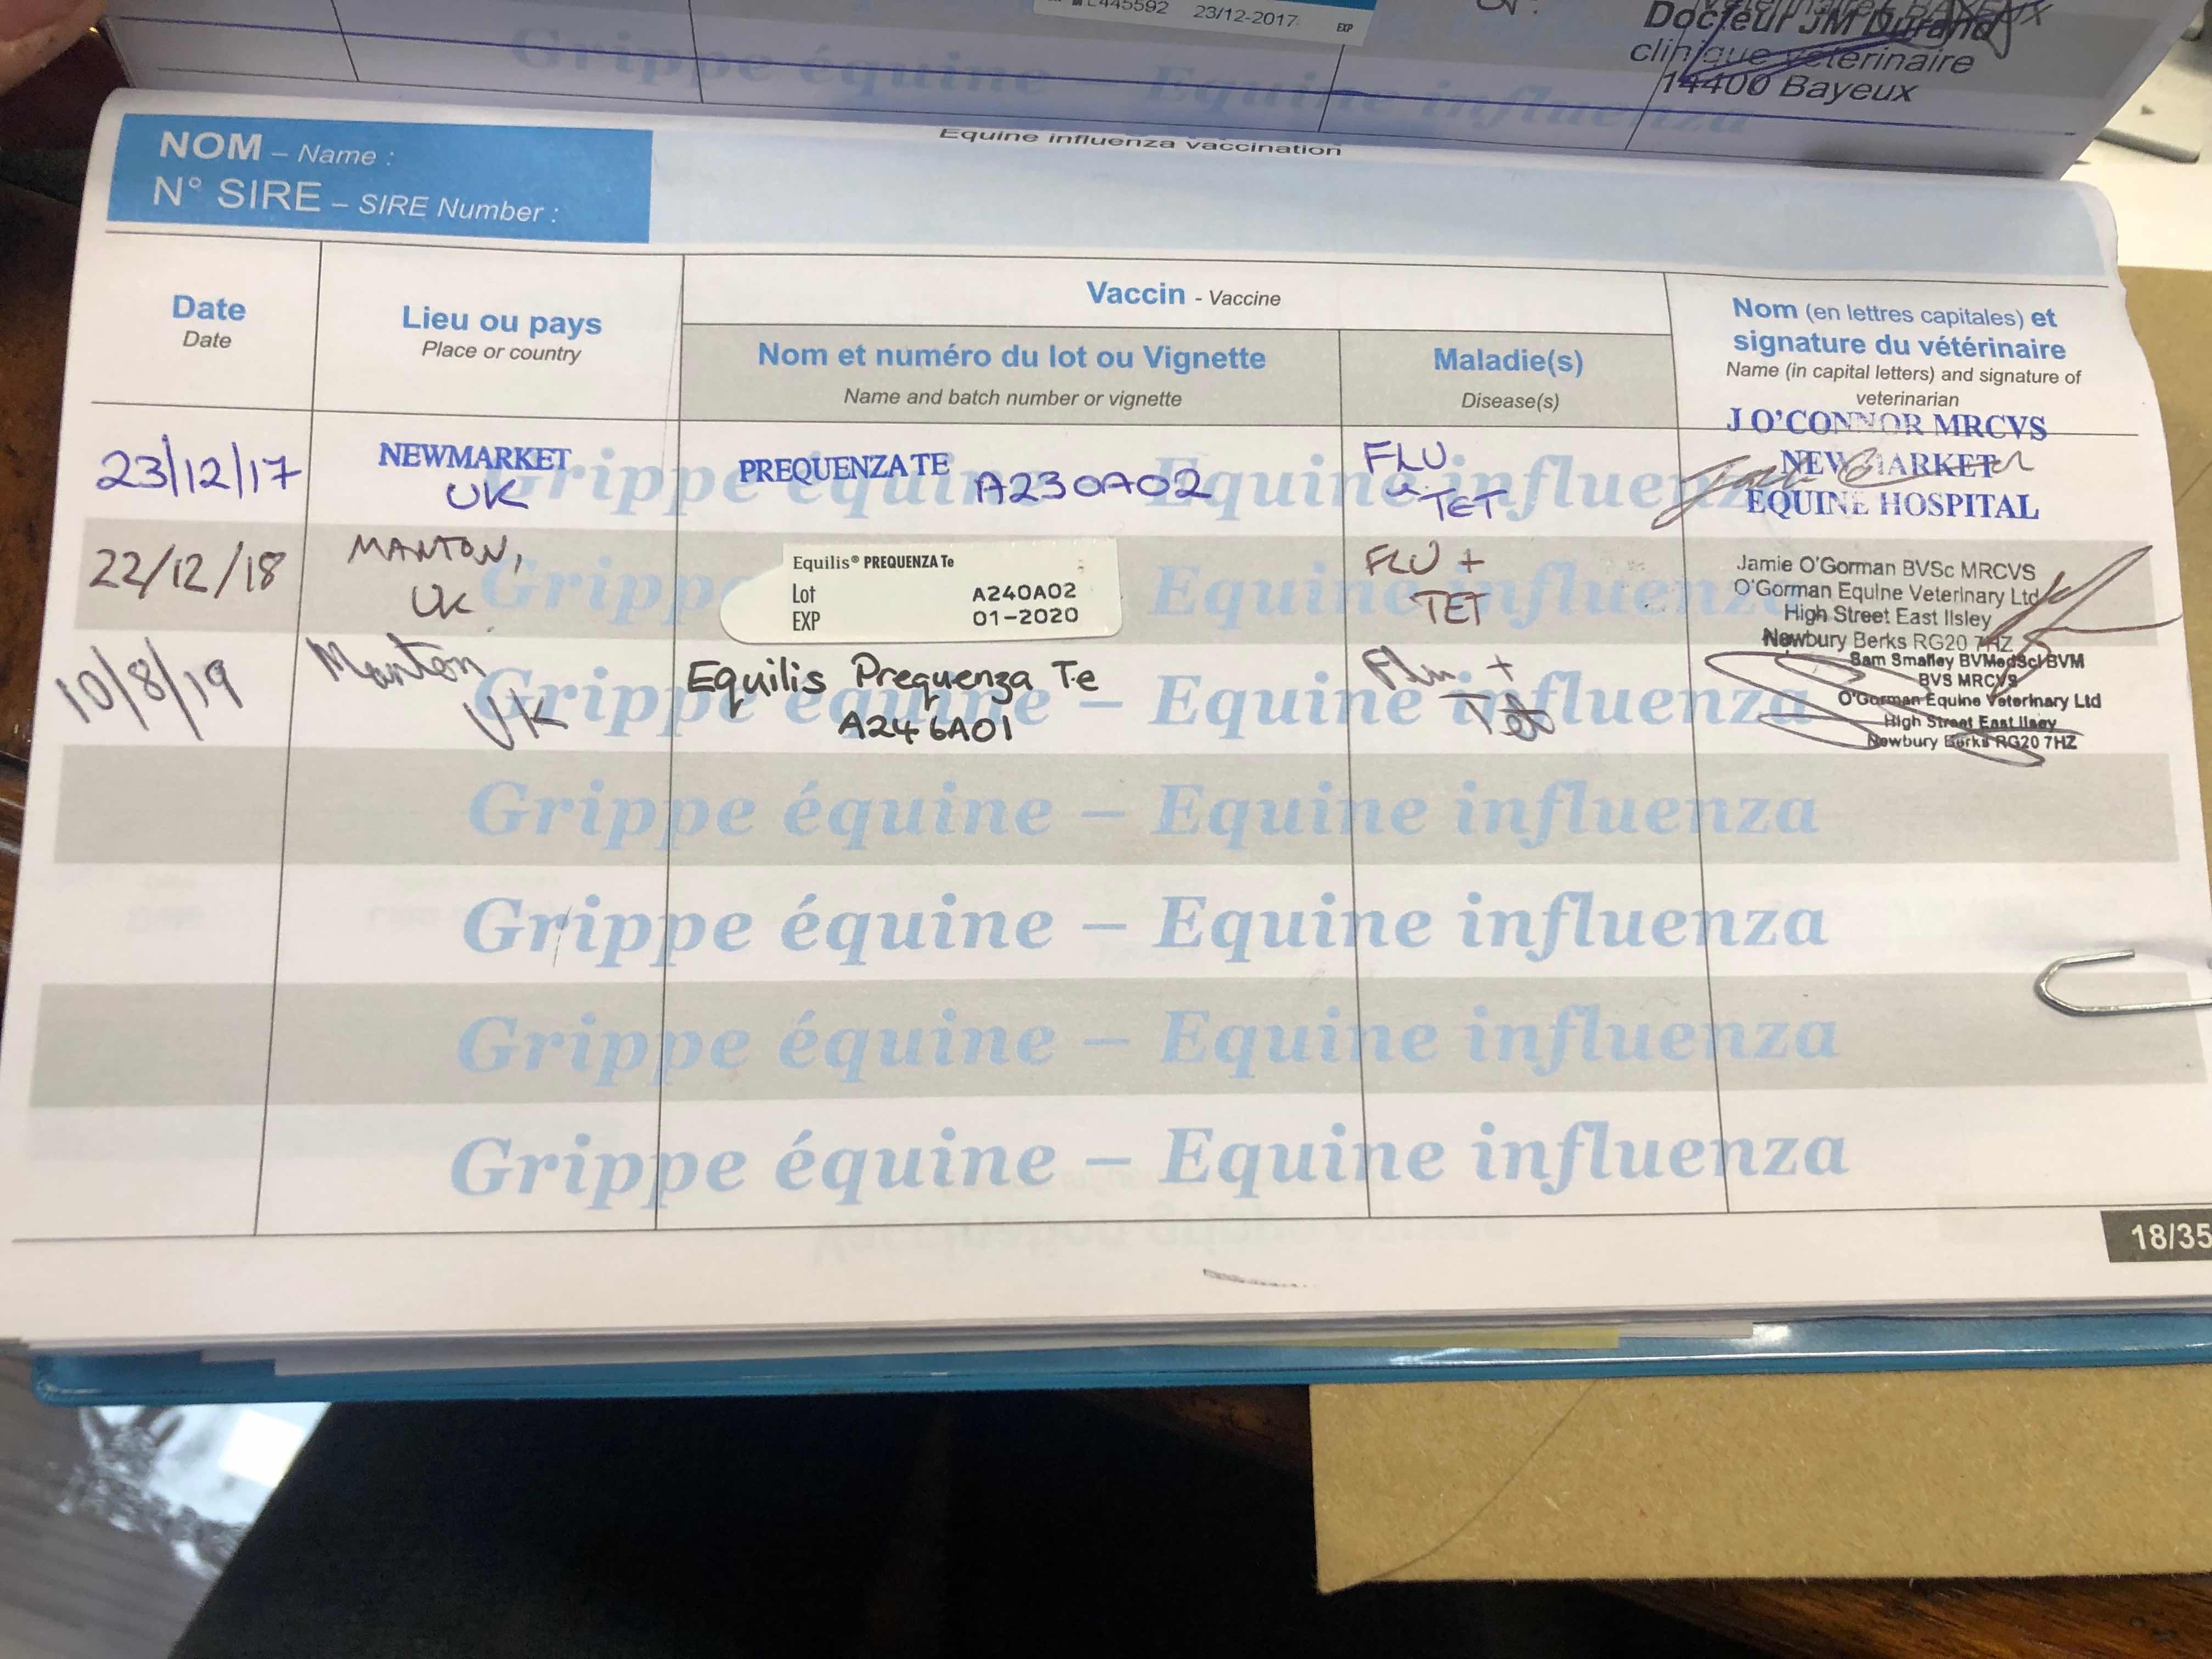 445592 23/12-2017 EXP
Docteur JM Durand
clinique vétérinaire
14400 Bayeux
Grippe équine – Equine influenza
NOM – Name :
N° SIRE – SIRE Number :
Equine influenza vaccination
Date
Date
Lieu ou pays
Place or country
Vaccin - Vaccine
Nom et numéro du lot ou Vignette
Name and batch number or vignette
Maladie(s)
Disease(s)
Nom (en lettres capitales) et
signature du vétérinaire
Name (in capital letters) and signature of
veterinarian
23/12/17
NEWMARKET
UK
PREQUENZA TE A230A02
FLU
TET
J O'CONNOR MRCVS
NEWMARKET
EQUINE HOSPITAL
Grippe équine – Equine influenza
22/12/18
MANTON,
UK
Equilis® PREQUENZA Te
Lot A240A02
EXP 01-2020
FLU +
TET
Jamie O'Gorman BVSc MRCVS
O'Gorman Equine Veterinary Ltd
High Street East Ilsley
Newbury Berks RG20 7HZ
Grippe équine – Equine influenza
10/8/19
Manton
UK
Equilis Prequenza Te
A246A01
Flu +
Tet
Sam Smalley BVMedSci BVM
BVS MRCVS
O'Gorman Equine Veterinary Ltd
High Street East Ilsey
Newbury Berks RG20 7HZ
Grippe équine – Equine influenza
Grippe équine – Equine influenza
Grippe équine – Equine influenza
Grippe équine – Equine influenza
Grippe équine – Equine influenza
18/35